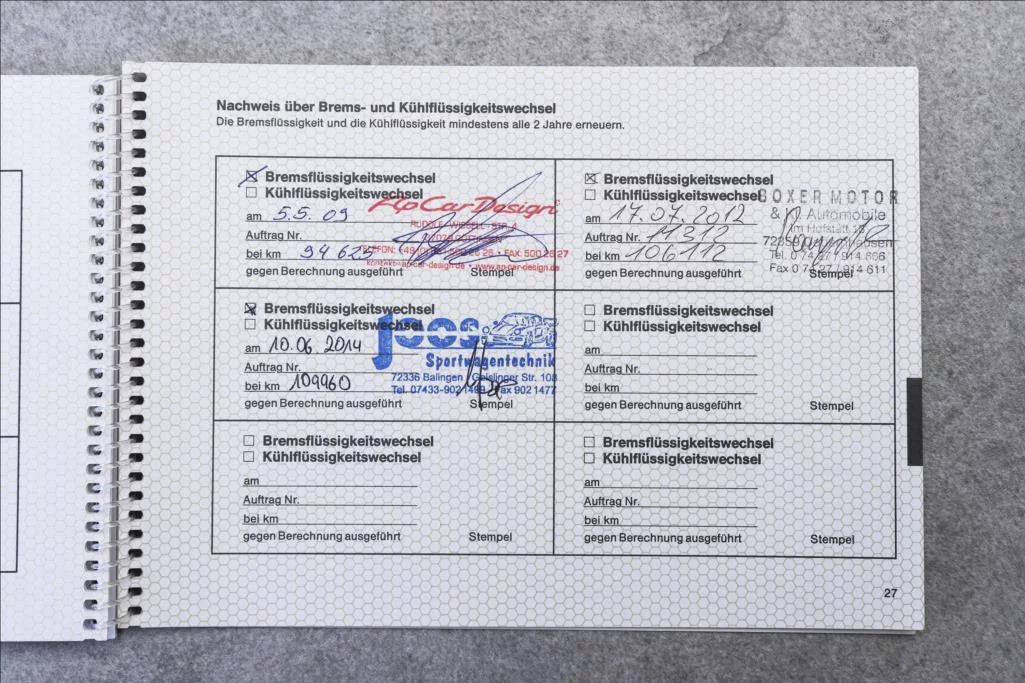 Nachweis über Brems- und Kühlflüssigkeitswechsel
Die Bremsflüssigkeit und die Kühlflüssigkeit mindestens alle 2 Jahre erneuern.
Bremsflüssigkeitswechsel
Kühlflüssigkeitswechsel
am 5.5. 09
Auftrag Nr.
bei km 94 625
gegen Berechnung ausgeführt Stempel
Ap Car Design
kontakt@ap-car-design.de · www.ap-car-design.de
Bremsflüssigkeitswechsel
Kühlflüssigkeitswechsel
am 17.07.2012
Auftrag Nr. 11312
bei km 106112
gegen Berechnung ausgeführt Stempel
BOXER MOTOR
& Automobile
Im Hofstätt
Tel. 0 74 27 / 914 666
Fax 0 74 27 / 914 611
Bremsflüssigkeitswechsel
Kühlflüssigkeitswechsel
am 10.06.2014
Auftrag Nr.
bei km 109960
gegen Berechnung ausgeführt Stempel
joos
Sportwagentechnik
72336 Balingen Geislinger Str. 108
Tel. 07433-902 1499 Fax 902 1477
Bremsflüssigkeitswechsel
Kühlflüssigkeitswechsel
am
Auftrag Nr.
bei km
gegen Berechnung ausgeführt Stempel
Bremsflüssigkeitswechsel
Kühlflüssigkeitswechsel
am
Auftrag Nr.
bei km
gegen Berechnung ausgeführt Stempel
Bremsflüssigkeitswechsel
Kühlflüssigkeitswechsel
am
Auftrag Nr.
bei km
gegen Berechnung ausgeführt Stempel
27